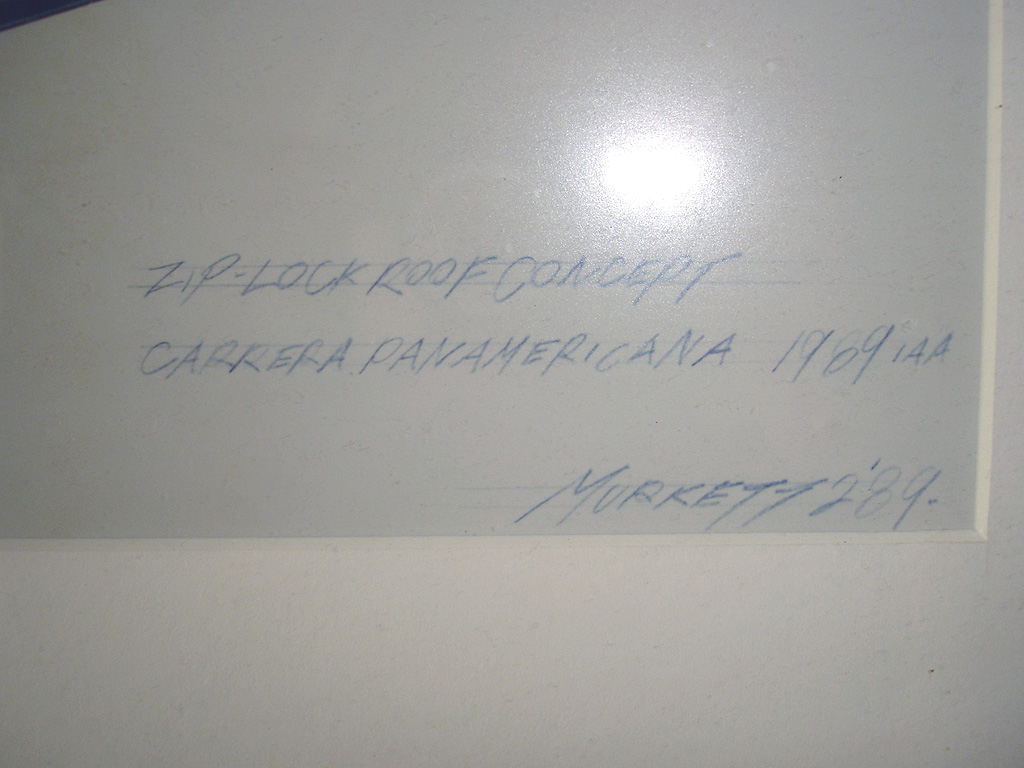 ZIP-LOCK ROOF CONCEPT
CARRERA PANAMERICANA 1989 IAA
MURKETT 2'89.